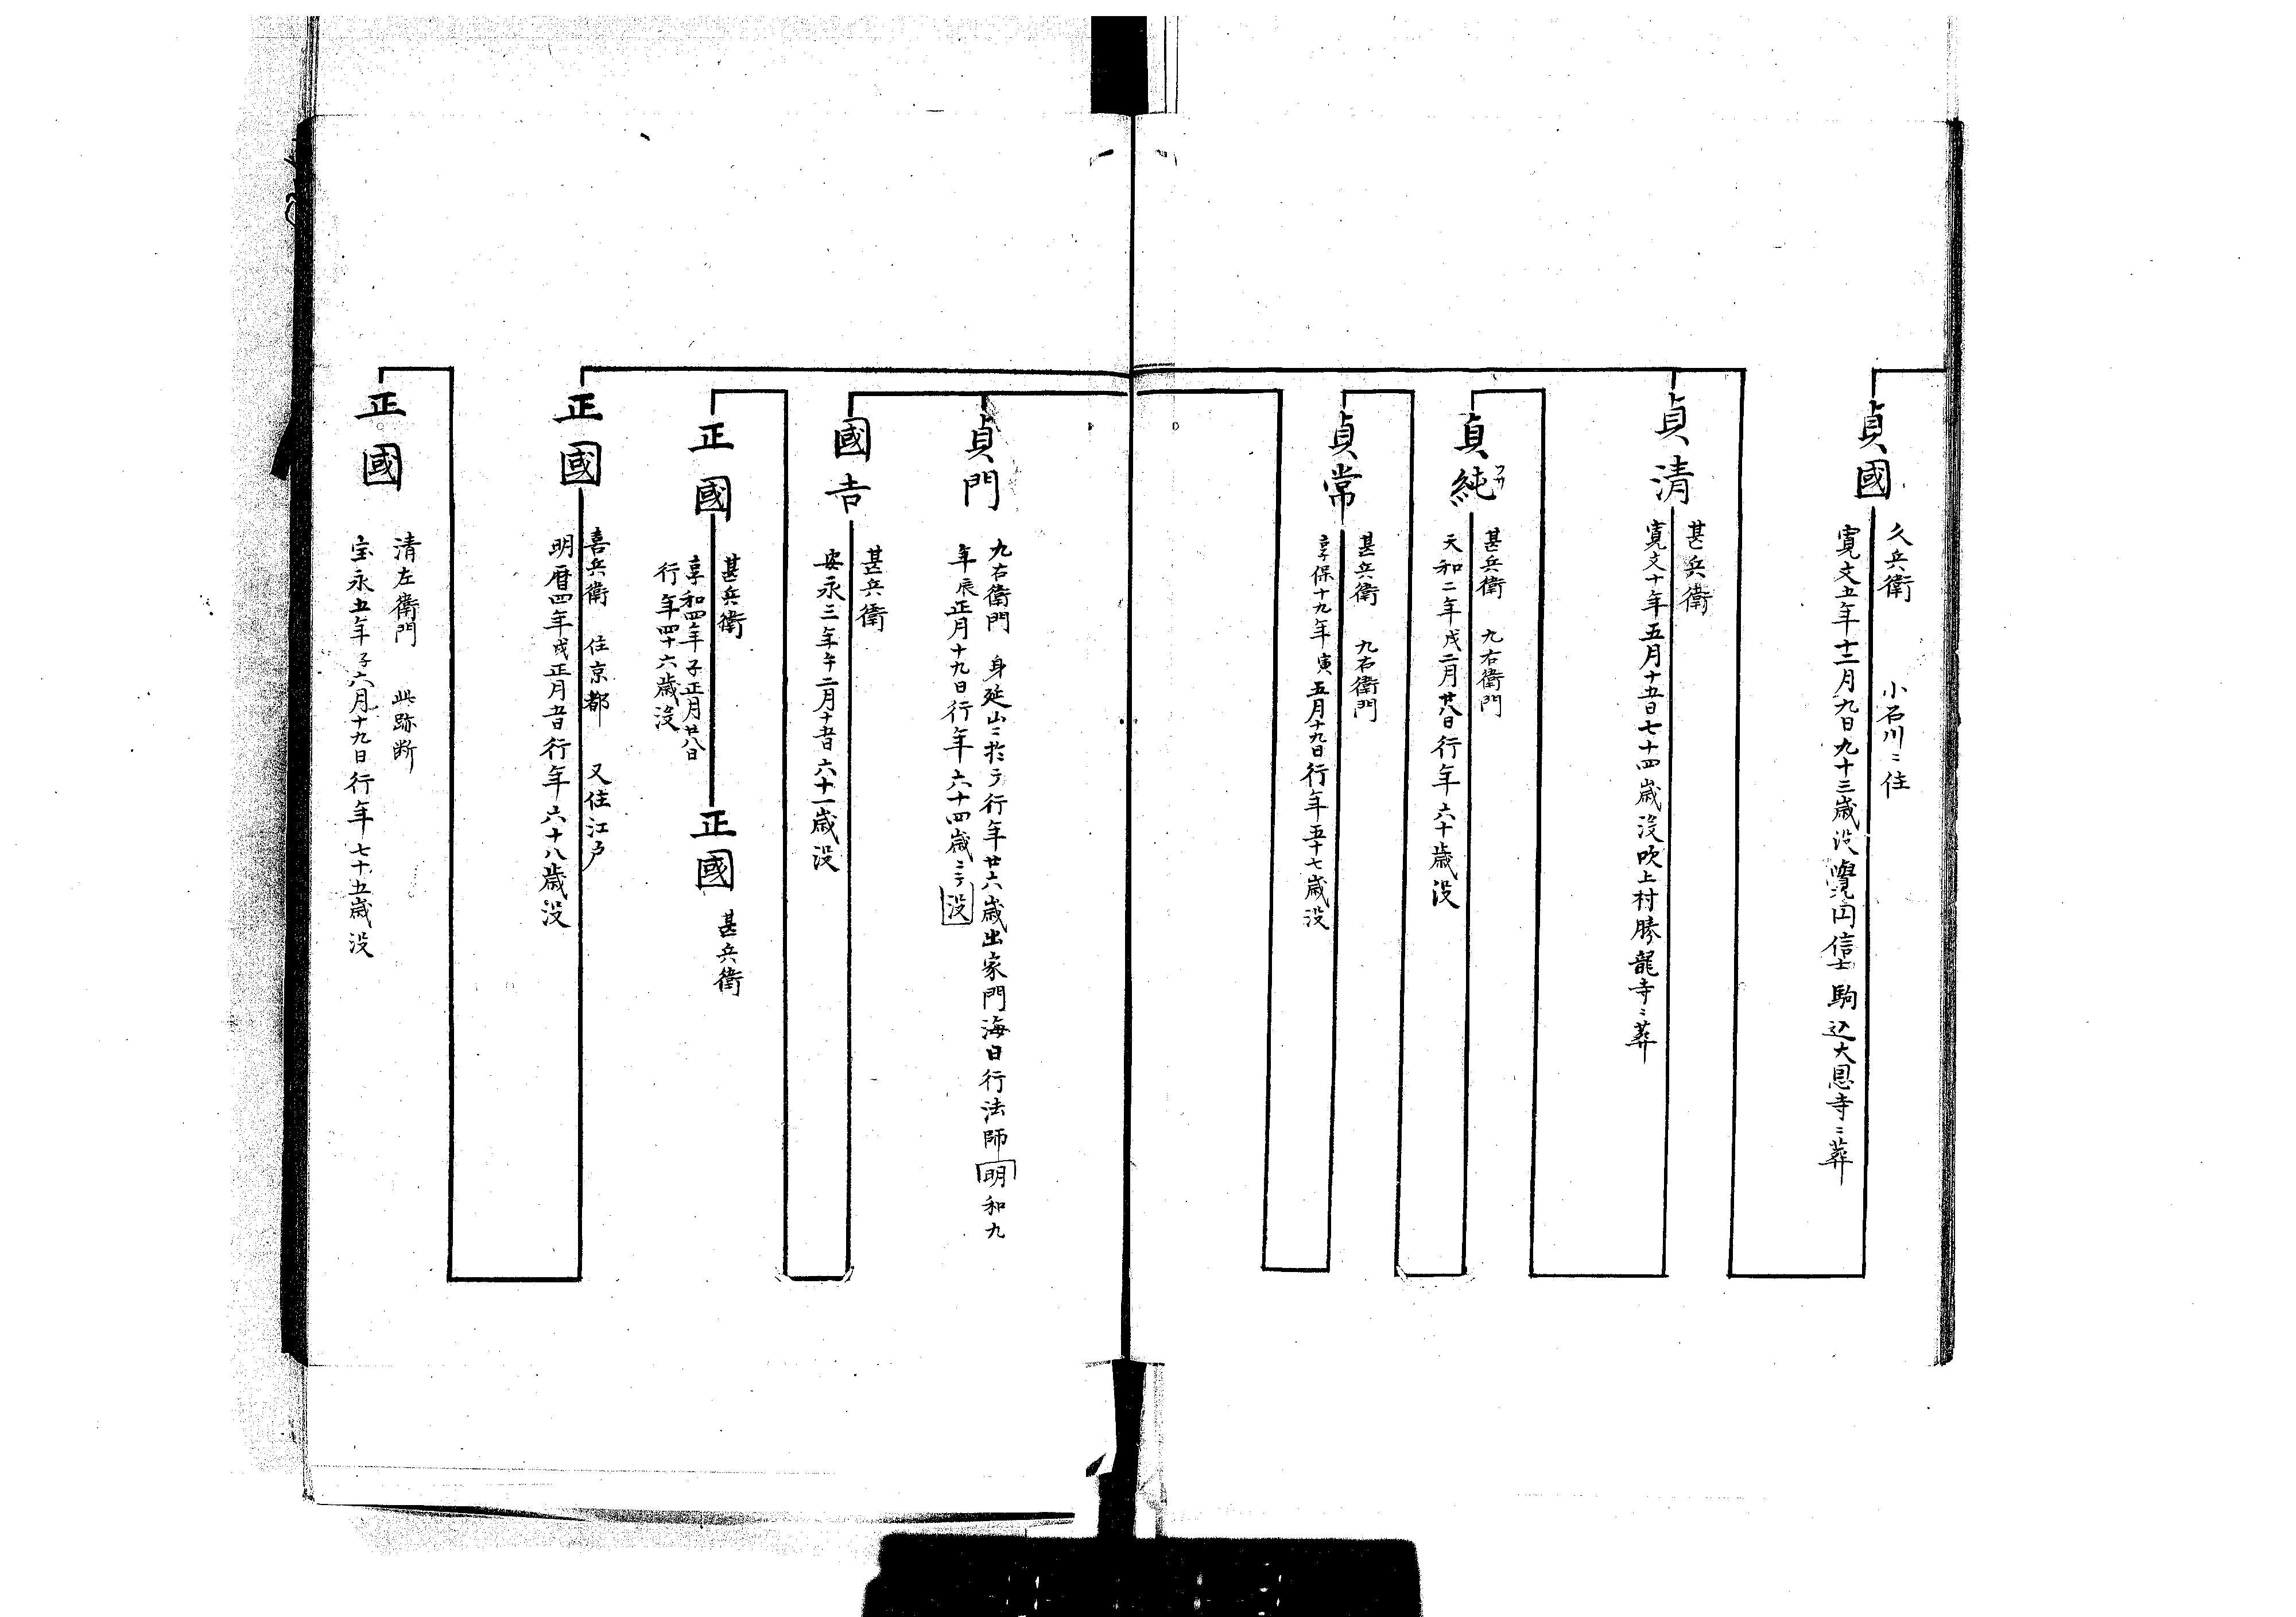 貞國
久兵衛 小石川ニ住
寛文五年十二月九日九十三歳没覺円信士 駒込大恩寺ニ葬
貞清
甚兵衛
寛文十年五月十五日七十四歳没吹上村勝龍寺ニ葬
貞純
甚兵衛 九右衛門
天和二年戌二月廿八日行年六十歳没
貞常
甚兵衛 九右衛門
享保十九年寅五月十九日行年五十七歳没
貞門
九右衛門 身延山ニ於テ行年廿六歳出家門海日行法師明和九
年辰正月十九日行年六十四歳ニテ没
國吉
甚兵衛
安永三年午二月十五日六十一歳没
正國
甚兵衛
享和四年子正月廿八日
行年四十六歳没
正國
甚兵衛
正國
喜兵衛 住京都 又住江戸
明暦四年戌正月五日行年六十八歳没
正國
清左衛門 此跡断
宝永五年子六月十九日行年七十五歳没